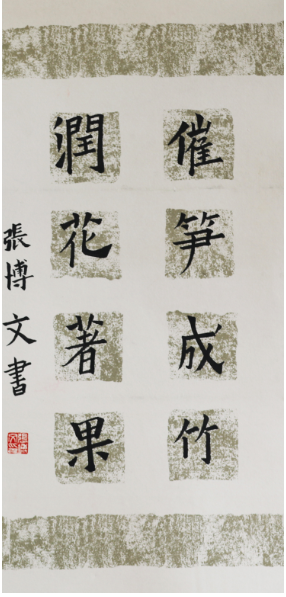 催笋成竹
潤花著果
張博文書